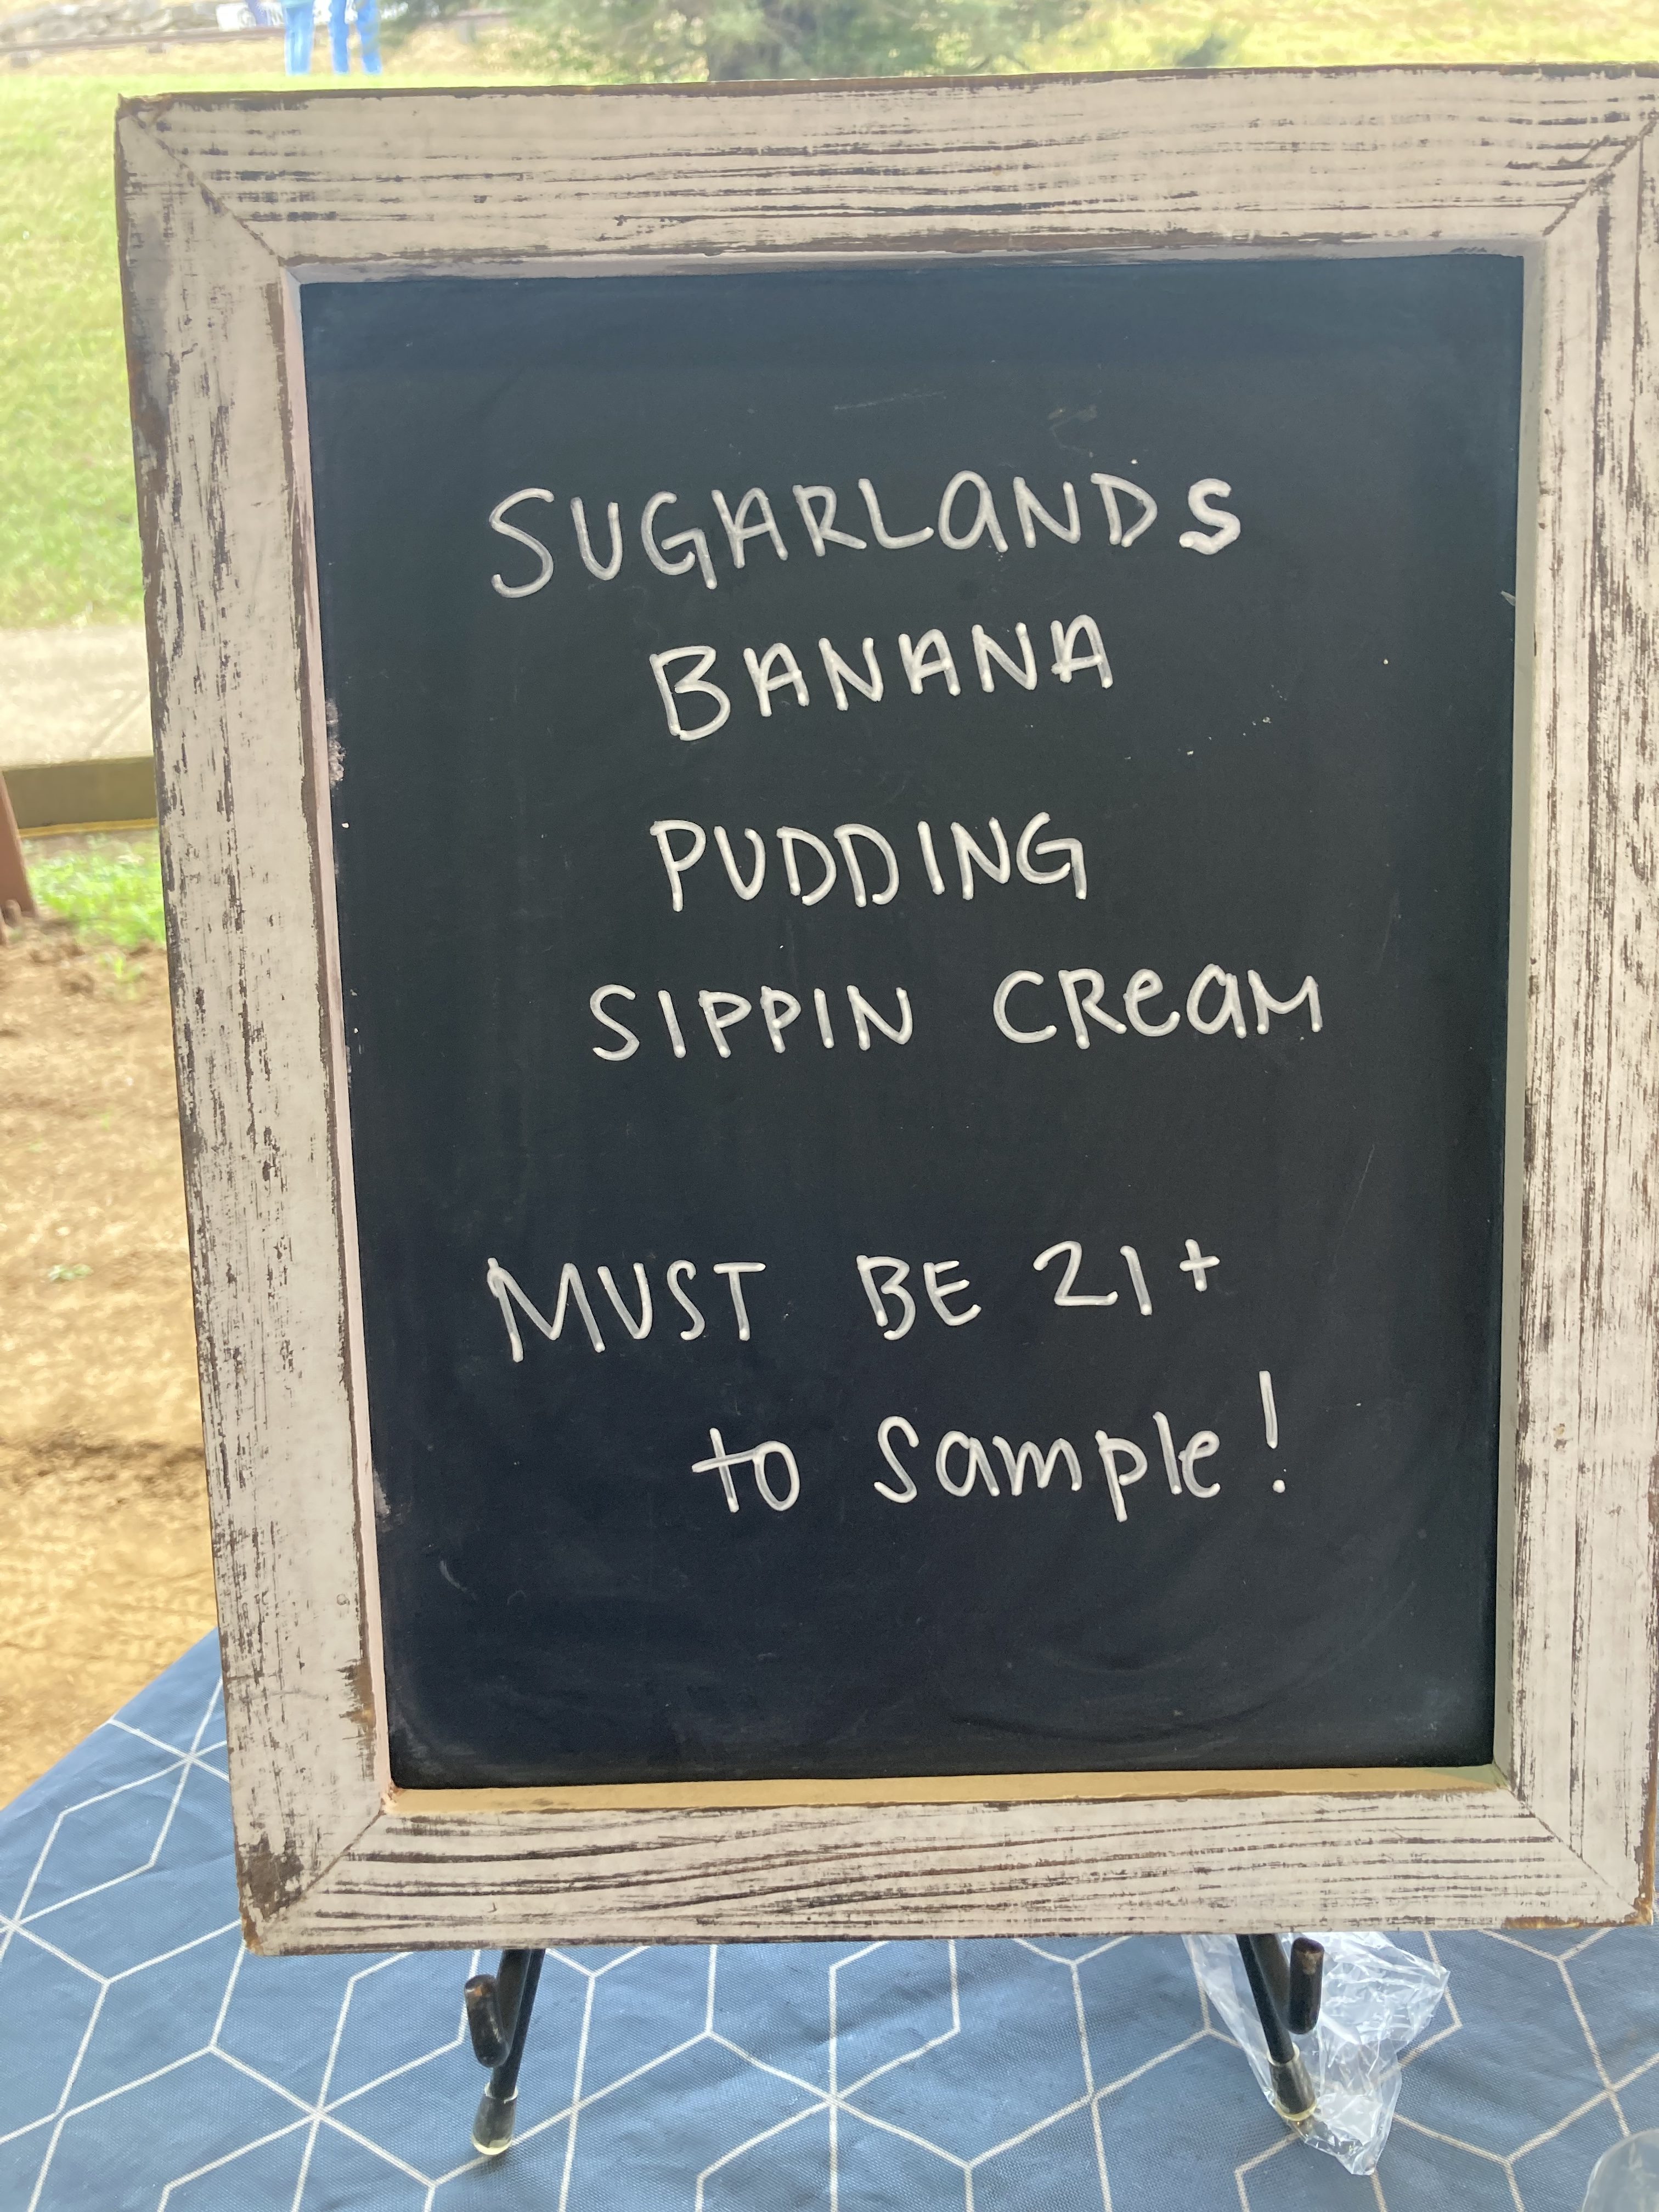 SUGARLANDS
BANANA
PUDDING
SIPPIN CReaM
MUST BE 21+
to Sample!